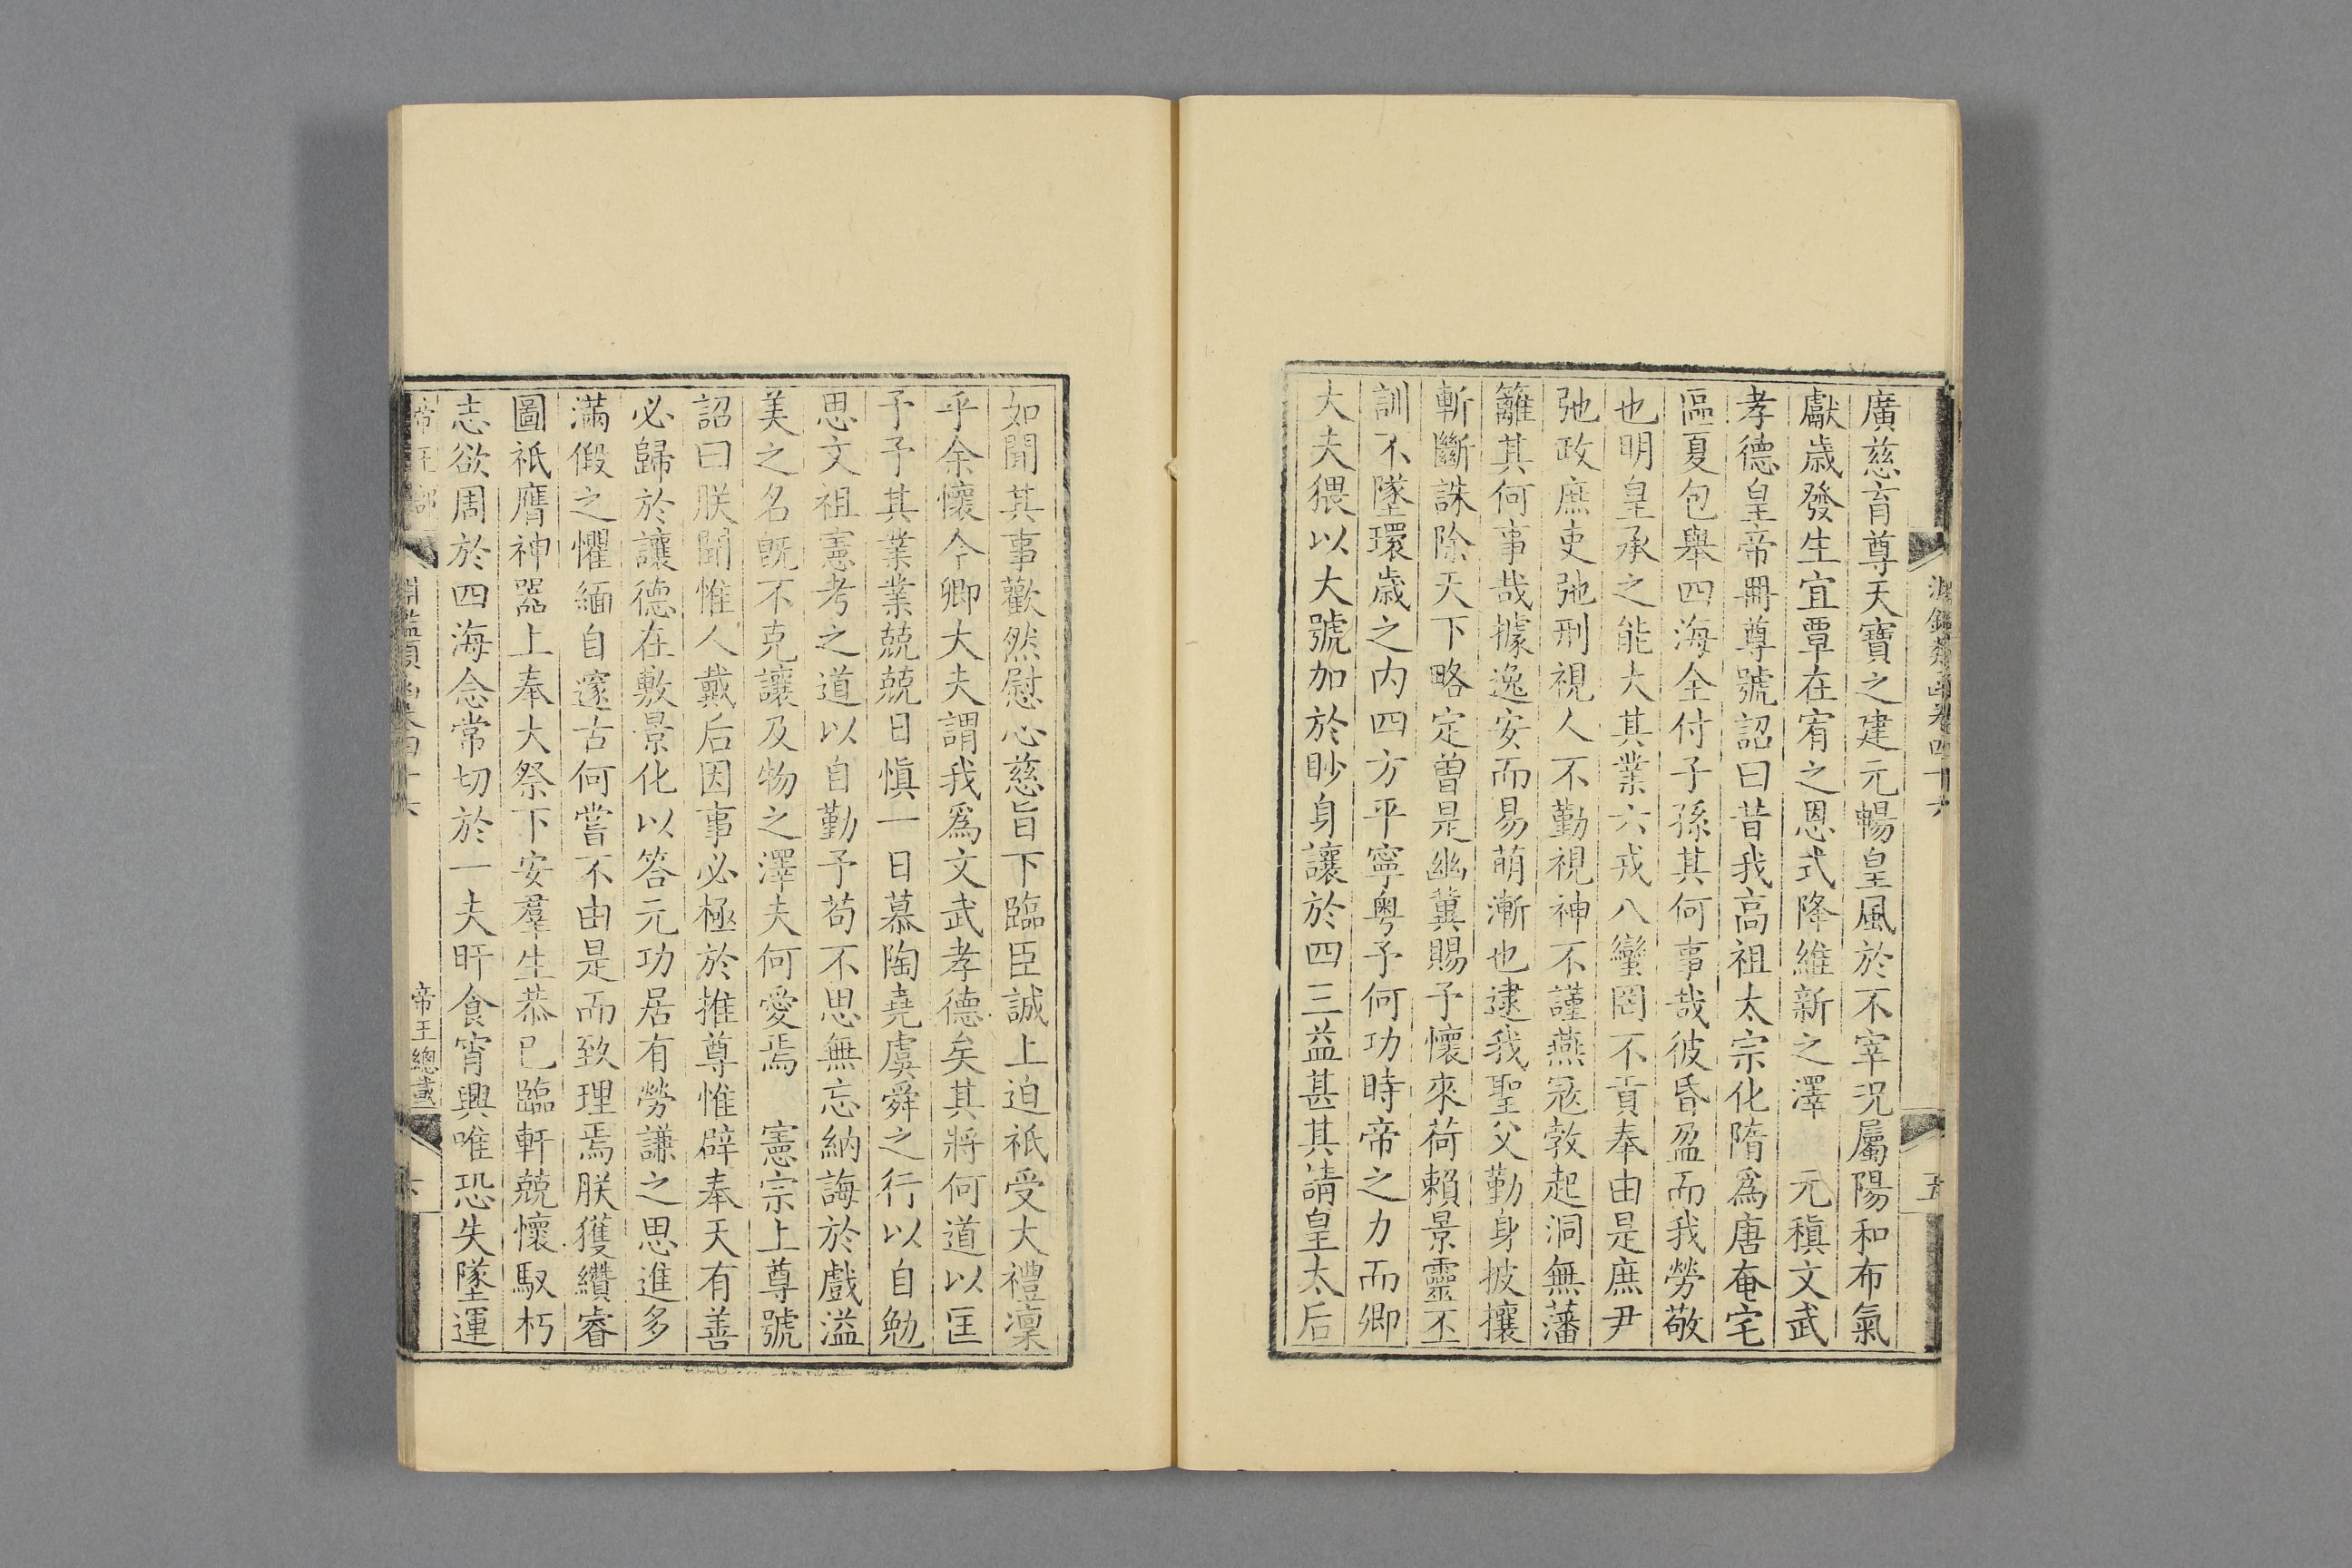 廣慈育尊天寶之建元暢皇風於不宰況屬陽和布氣
獻歲發生宜覃在宥之恩式降維新之澤　元稹文武
孝德皇帝冊尊號詔曰昔我高祖太宗化隋爲唐奄宅
區夏包舉四海全付子孫其何事哉彼昏盈而我勞敬
也明皇承之能大其業六戎八蠻罔不貢奉由是庶尹
弛政庶吏弛刑視人不勤視神不謹燕宼敦起洞無藩
籬其何事哉據逸安而易萌漸也逮我聖父勤身披攘
斬斷誅除天下略定曽是幽冀賜予懷來荷賴景靈丕
訓不墜環歲之內四方平寧粤予何功時帝之力而卿
大夫猥以大號加於眇身讓於四三益甚其請皇太后
如聞其事歡然慰心慈旨下臨臣誠上迫祇受大禮凜
乎余懷今卿大夫謂我爲文武孝德矣其將何道以匡
予予其業業兢兢日愼一日慕陶堯虞舜之行以自勉
思文祖憲考之道以自勤予苟不思無忘納誨於戲溢
美之名旣不克讓及物之澤夫何愛焉　憲宗上尊號
詔曰朕聞惟人戴后因事必極於推尊惟辟奉天有善
必歸於讓德在敷景化以答元功居有勞謙之思進多
滿假之懼緬自邃古何嘗不由是而致理焉朕獲纘睿
圖祇膺神器上奉大祭下安羣生恭已臨軒兢懷馭朽
志欲周於四海念常切於一夫旰食宵興唯恐失墜運
帝王總載